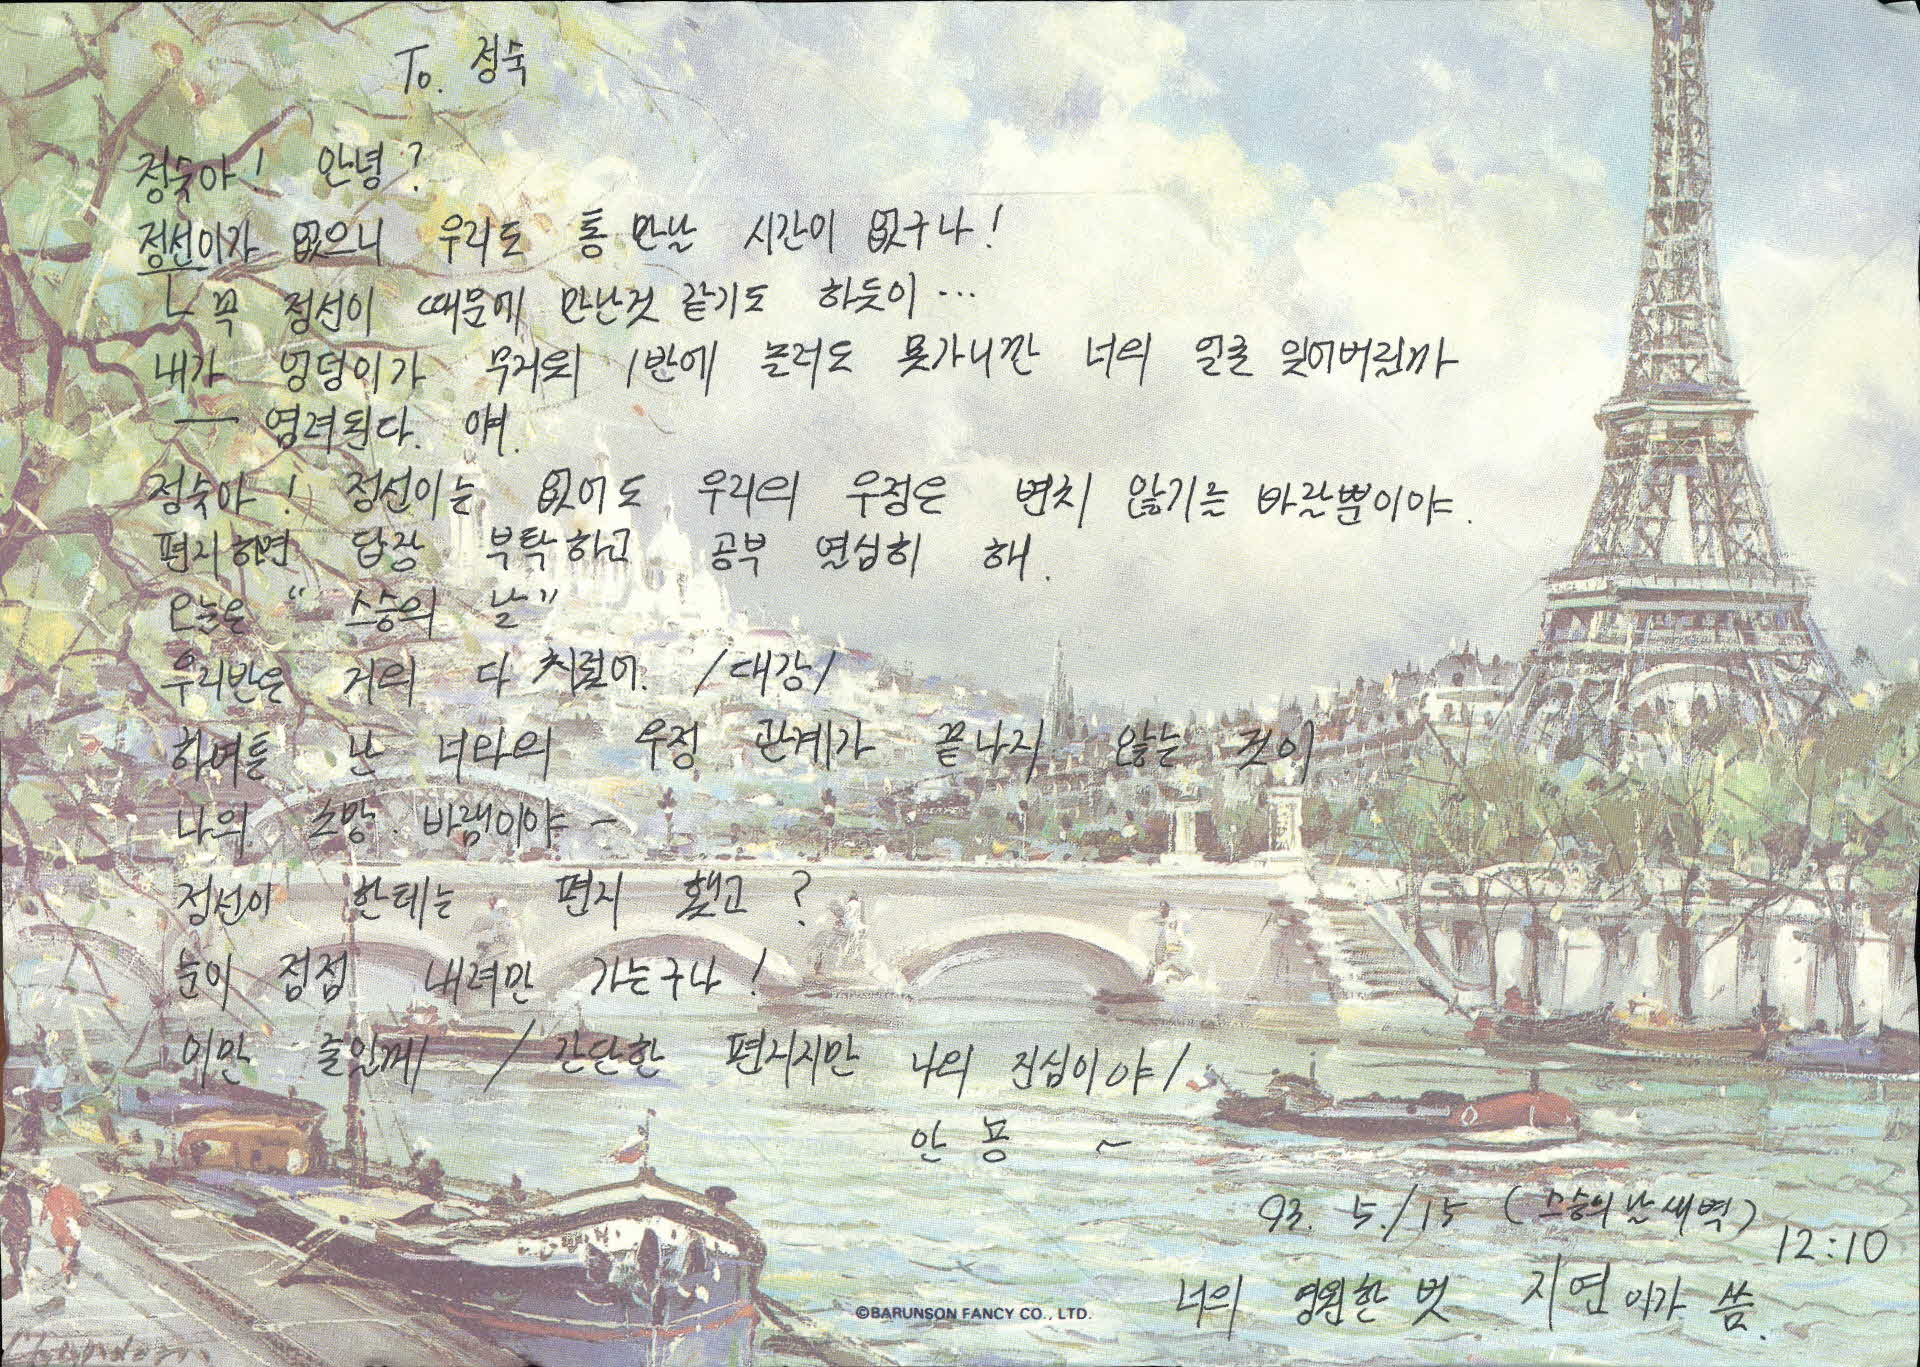 To. 정숙
정숙아! 안녕?
정선이가 없으니 우리도 통 만날 시간이 없구나!
ㄴ 꼭 정선이 때문에 만난것 같기도 하듯이...
내가 엉덩이가 무거워 1반에 놀러도 못가니깐 너의 얼굴 잊어버릴까
— 염려된다. 얘.
정숙아! 정선이는 없어도 우리의 우정은 변치 않기를 바랄뿐이야.
편지하면 답장 부탁하고 공부 열심히 해.
오늘은 "스승의 날"
우리반은 거의 다 치뤘어. /대강/
하여튼 난 너와의 우정 관계가 끝나지 않는 것이
나의 소망. 바램이야 ~
정선이 한테는 편지 했고?
눈이 점점 내려만 가는구나!
이만 줄일께 / 간단한 편지지만 나의 진심이야 /
안뇽 ~
93. 5. /15 (스승의 날 새벽)
12:10
너의 영원한 벗 지연이가 씀.
©BARUNSON FANCY CO., LTD.